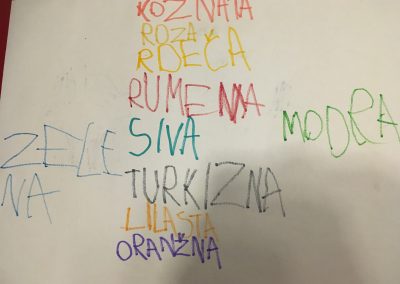 KOZNATA
ROZA
RDEČA
RUMENA
SIVA
MODRA
ZELE
NA
TURKIZNA
LILASTA
ORANŽNA